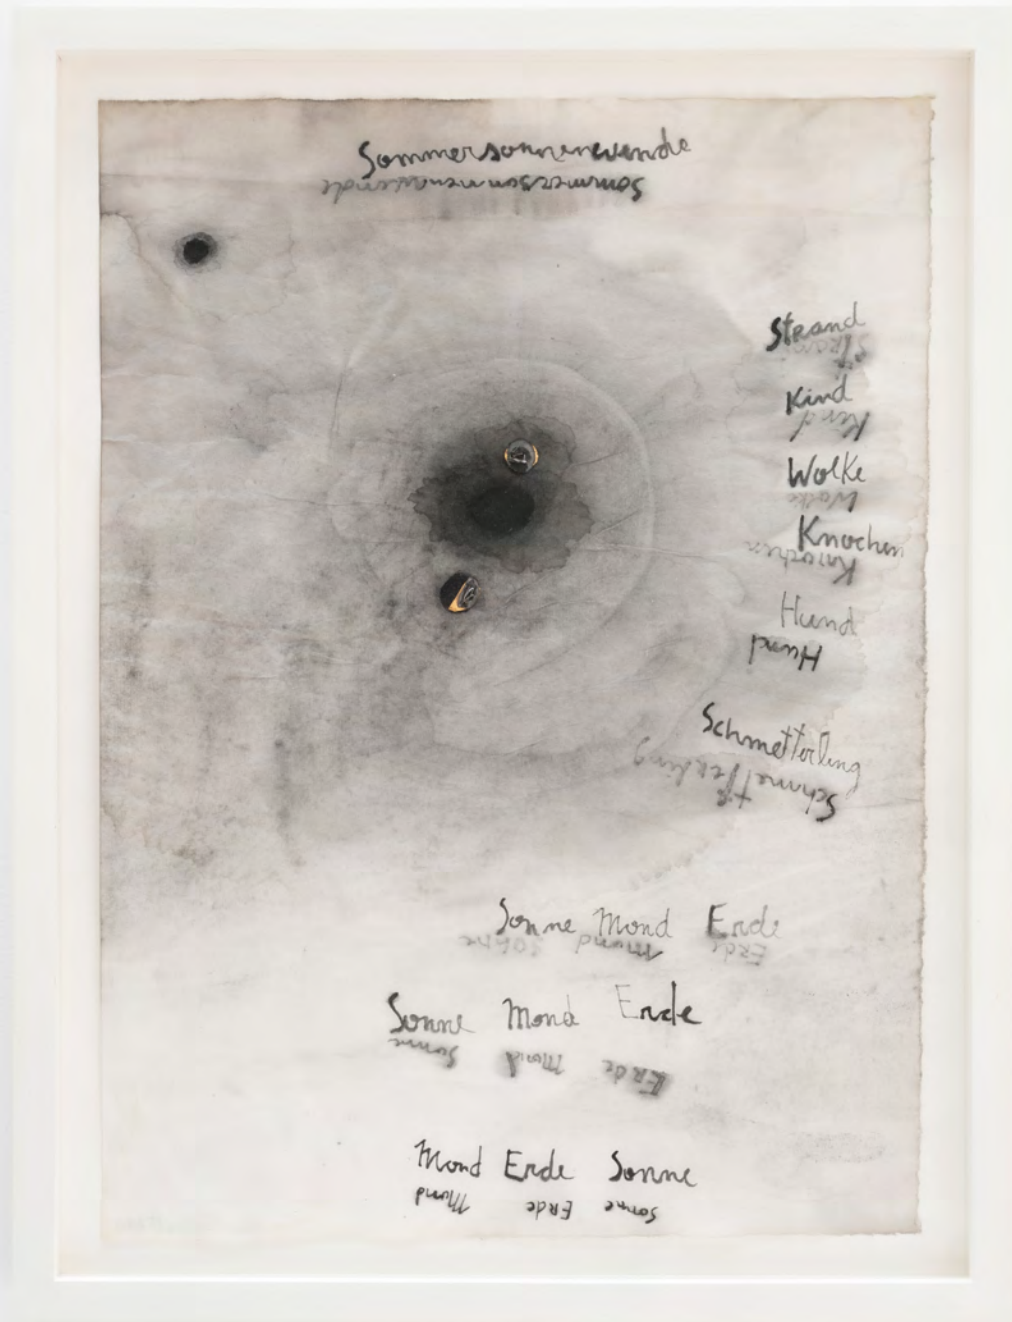 Sommersonnenwende
Sommersonnenwende
Strand
Strand
Kind
Kind
Wolke
Wolke
Knochen
Knochen
Hund
Hund
Schmetterling
Schmetterling
Sonne Mond Erde
Sonne Mond Erde
Sonne Mond Erde
Sonne Mond Erde
Mond Erde Sonne
Mond Erde Sonne